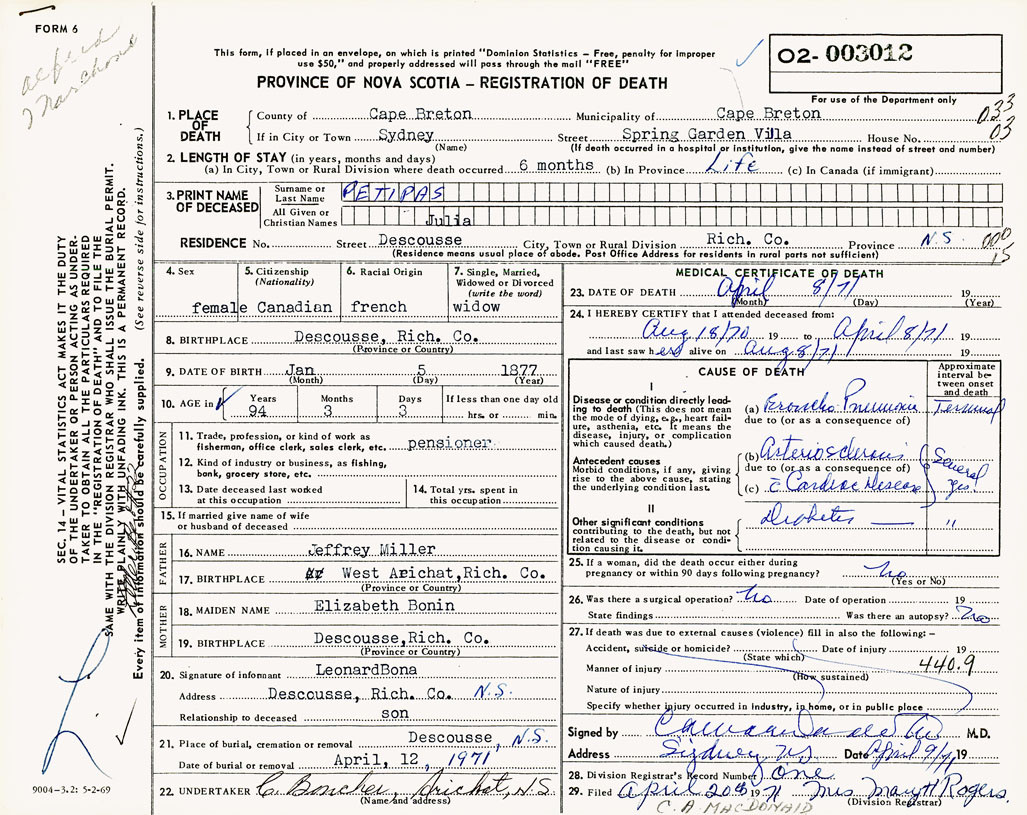 FORM 6
Alfred
Marchand
This form, if placed in an envelope, on which is printed "Dominion Statistics – Free, penalty for improper
use $50," and properly addressed will pass through the mail "FREE"
PROVINCE OF NOVA SCOTIA – REGISTRATION OF DEATH
02- 003012
For use of the Department only
033
03
1. PLACE OF DEATH
County of Cape Breton Municipality of Cape Breton
If in City or Town Sydney Street Spring Garden Villa House No.
(Name) (If death occurred in a hospital or institution, give the name instead of street and number)
2. LENGTH OF STAY (in years, months and days)
(a) In City, Town or Rural Division where death occurred 6 months (b) In Province Life (c) In Canada (if immigrant)
3. PRINT NAME OF DECEASED
Surname or Last Name PETIPAS
All Given or Christian Names Julia
RESIDENCE No. Street Descousse City, Town or Rural Division Rich. Co. Province N.S.
(Residence means usual place of abode. Post Office Address for residents in rural parts not sufficient)
000
15
4. Sex
female
5. Citizenship
(Nationality)
Canadian
6. Racial Origin
french
7. Single, Married,
Widowed or Divorced
(write the word)
widow
8. BIRTHPLACE Descousse, Rich. Co.
(Province or Country)
9. DATE OF BIRTH Jan 5 1877
(Month) (Day) (Year)
10. AGE in
Years Months Days If less than one day old
94 3 3 hrs. or min.
OCCUPATION
11. Trade, profession, or kind of work as
fisherman, office clerk, sales clerk, etc. pensioner
12. Kind of industry or business, as fishing,
bank, grocery store, etc.
13. Date deceased last worked
at this occupation
14. Total yrs. spent in
this occupation
15. If married give name of wife
or husband of deceased
FATHER
16. NAME Jeffrey Miller
17. BIRTHPLACE West Arichat,Rich. Co.
(Province or Country)
MOTHER
18. MAIDEN NAME Elizabeth Bonin
19. BIRTHPLACE Descousse,Rich. Co.
(Province or Country)
20. Signature of informant LeonardBona
Address Descousse, Rich. Co. N.S.
Relationship to deceased son
21. Place of burial, cremation or removal Descousse, N.S.
Date of burial or removal April, 12, 1971
22. UNDERTAKER C. Boucher, Arichat, N.S.
(Name and address)
MEDICAL CERTIFICATE OF DEATH
23. DATE OF DEATH April 8/71 19
(Month) (Day) (Year)
24. I HEREBY CERTIFY that I attended deceased from:
Aug 18/70 19 to April 8/71 19
and last saw her alive on Aug 8/71 19
CAUSE OF DEATH
Approximate
interval be-
tween onset
and death
I
Disease or condition directly lead-
ing to death (This does not mean
the mode of dying, e.g., heart fail-
ure, asthenia, etc. It means the
disease, injury, or complication
which caused death.)
(a) Broncho Pneumonia Terminal
due to (or as a consequence of)
Antecedent causes
Morbid conditions, if any, giving
rise to the above cause, stating
the underlying condition last.
(b) Arteriosclerosis
due to (or as a consequence of)
(c) c̄ Cardiac Disease
Several
yrs.
II
Other significant conditions
contributing to the death, but not
related to the disease or condi-
tion causing it.
Diabetes — "
25. If a woman, did the death occur either during
pregnancy or within 90 days following pregnancy? No
(Yes or No)
26. Was there a surgical operation? No Date of operation 19
State findings Was there an autopsy? No
27. If death was due to external causes (violence) fill in also the following: –
Accident, suicide or homicide? Date of injury 19
(State which)
Manner of injury 440.9
(How sustained)
Nature of injury
Specify whether injury occurred in industry, in home, or in public place
Signed by M.D.
Address Sydney NS Date April 9/71 19
28. Division Registrar's Record Number One
29. Filed April 20th 1971 Mrs Mary H Rogers.
(Division Registrar)
C. A. MACDONALD
SEC. 14 – VITAL STATISTICS ACT MAKES IT THE DUTY
OF THE UNDERTAKER OR PERSON ACTING AS UNDER-
TAKER TO OBTAIN ALL THE PARTICULARS REQUIRED
IN THE "REGISTRATION OF DEATH" AND TO FILE THE
SAME WITH THE DIVISION REGISTRAR WHO SHALL ISSUE THE BURIAL PERMIT.
WRITE PLAINLY WITH UNFADING INK. THIS IS A PERMANENT RECORD.
Every item of information should be carefully supplied. (See reverse side for instructions.)
9004-3.2: 5-2-69